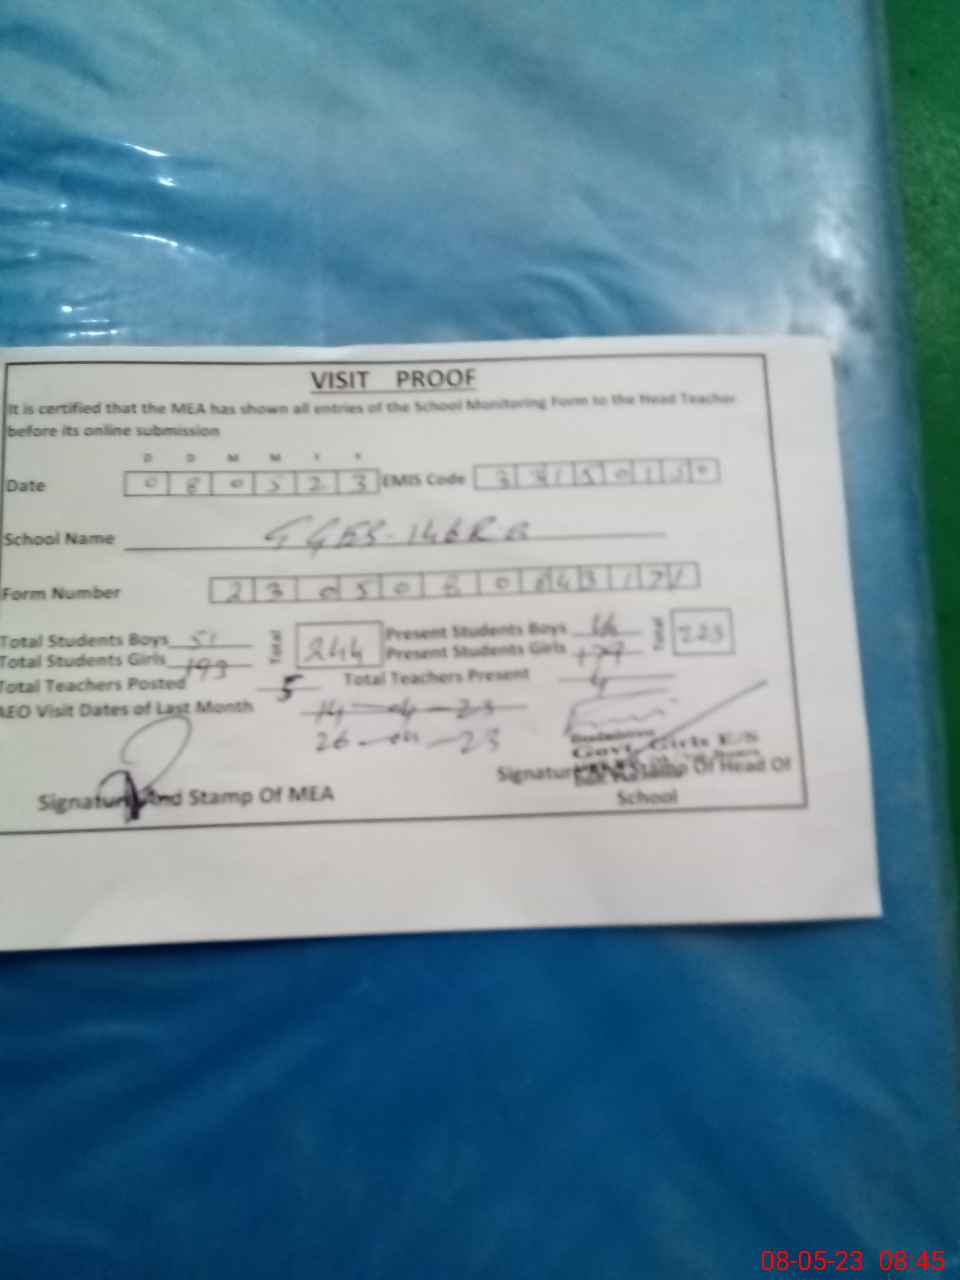 VISIT PROOF
It is certified that the MEA has shown all entries of the School Monitoring Form to the Head Teacher
before its online submission
D D M M Y Y
Date 0 8 0 5 2 3 EMIS Code
School Name GGES-146RB
Form Number
Total Students Boys 51 Total 244 Present Students Boys Total 223
Total Students Girls 193 Present Students Girls
Total Teachers Posted 5 Total Teachers Present 4
AEO Visit Dates of Last Month 14-4-23
26-04-23
Govt. Girls E/S
Signature And Stamp Of MEA Signature And Stamp Of Head Of
School
08-05-23 08:45